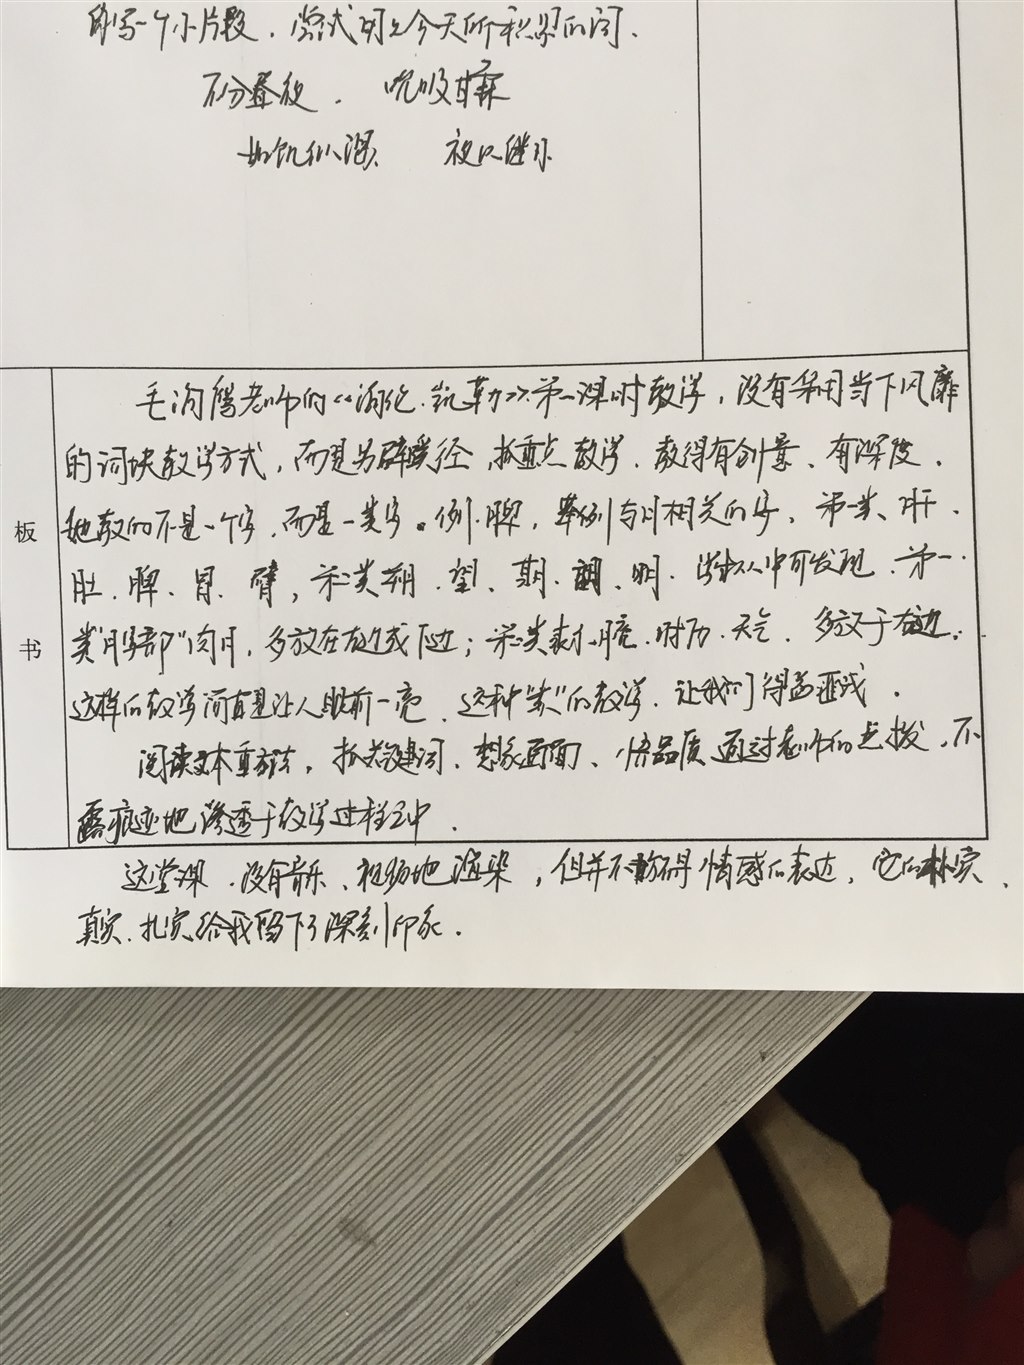 即写一个小片段.尝试用上今天所积累的词.
不分昼夜. 吮吸甘霖
如饥似渴 夜以继日
毛 老师的《海伦.凯勒》第一课时教学,没有采用当下风靡
的词块教学方式,而是另辟蹊径,抓重点教学.教得有创意、有深度.
板
她教的不是一个字,而是一类字。例.脾,举例与月相关的字,第一类、肝.
肚、脾、胃、臂,第二类朔、望、期、朗、明.学生从中可发现.第一
书
类"月字部"肉月,多放在左边或下边;第二类表示月亮.时历.天气.多放于右边.
这样的教学简直是让人眼前一亮.这种"类"的教学.让我们得益匪浅.
阅读文本重方法,抓关键词、想象画面、悟品质通过老师的点拨,不
露痕迹地渗透于教学过程之中.
这堂课.没有音乐、视频地渲染,但并不妨碍情感的表达,它的朴实、
真实.扎实给我留下了深刻印象.